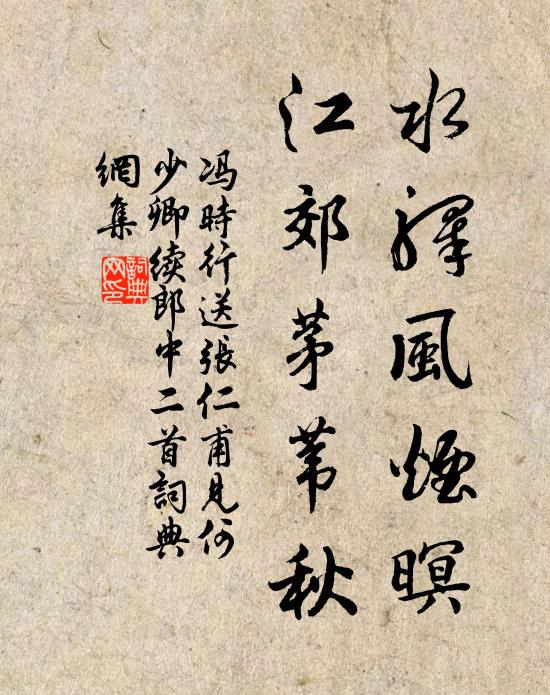 水驛風煙暝
江郊茅葦秋
馮時行送張仁甫見何
少卿續郎中二首詞典
網集
詞典
网印